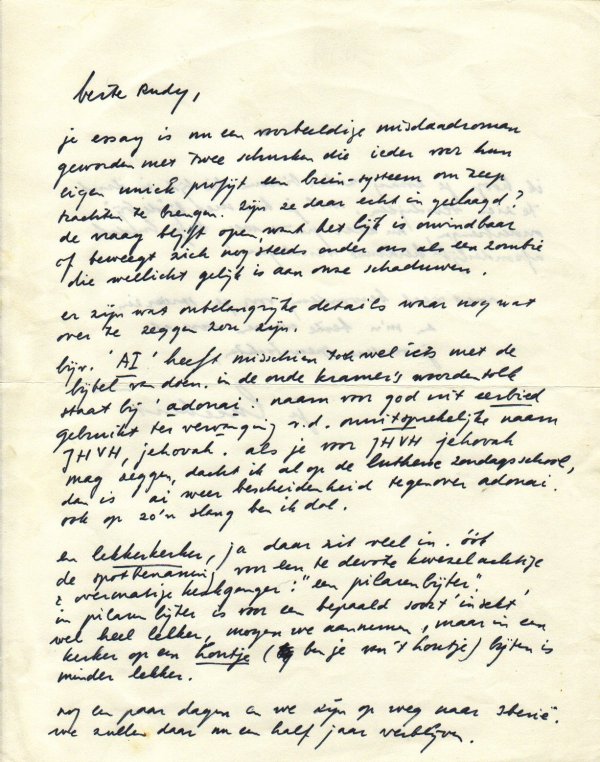 beste Rudy,
je essay is nu een voorbeeldige misdaadroman
geworden met twee schurken die ieder voor hun
eigen uniek profijt een brein-systeem om zeep
trachten te brengen. zijn ze daar echt in geslaagd?
de vraag blijft open, want het lijk is onvindbaar
of beweegt zich nog steeds onder ons als een zombie
die wellicht gelijk is aan onze schaduwen.
er zijn wat onbelangrijke details waar nog wat
over te zeggen zou zijn.
bijv. 'AI' heeft misschien toch wel iets met de
bijbel van doen. in de oude kramer's woordentolk
staat bij 'adonai': naam voor god uit eerbied
gebruikt ter vervanging v.d. onuitsprekelijke naam
JHVH, jehovah. als je voor JHVH jehovah
mag zeggen, dacht ik al op de lutherse zondagsschool,
dan is ai weer bescheidenheid tegenover adonai.
ook op zo'n slang ben ik dol.
en lekkerkerker, ja daar zit veel in. óók
de spotbenaming voor een te devote kwezelachtige
& overmatige kerkganger: "een pilarenbijter".
in pilaren bijten is voor een bepaald soort insekt
wel heel lekker, mogen we aannemen, maar in een
kerker op een houtje (ben je van 't houtje) bijten is
minder lekker.
nog een paar dagen en we zijn op weg naar Iberië.
we zullen daar nu een half jaar verblijven.